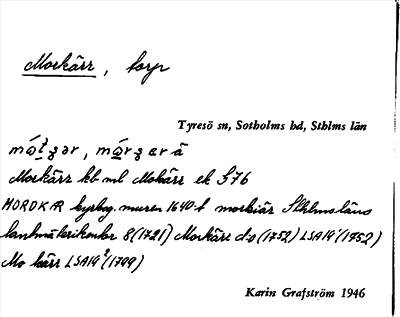 Morkärr, torp
Tyresö sn, Sotholms hd, Sthlms län
Morkärr kb ml Mokärr ek S76
MORDKÆR kyrkog. muren 1640-t morkiär Sthlmsläns
lantmäterikontor 8 (1721) Morkärr d:o (1752) LSA19 (1752)
Mo kärr LSA19² (1799)
Karin Grafström 1946